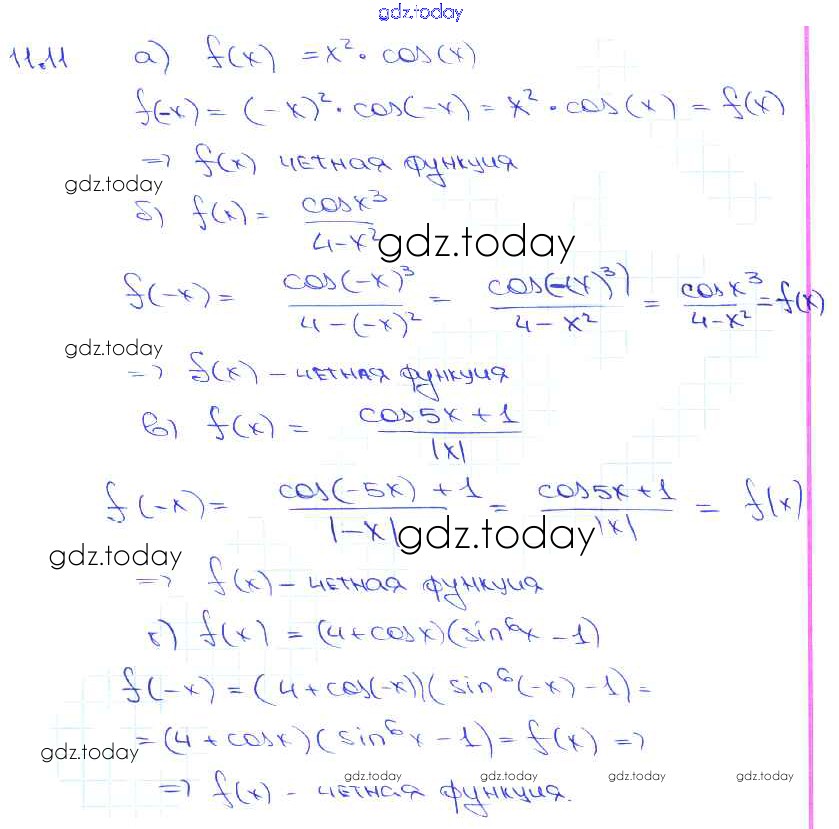 gdz.today
11.11 а) f(x) = x² · cos(x)
f(-x) = (-x)² · cos(-x) = x² · cos(x) = f(x)
=> f(x) четная функция
gdz.today
б) f(x) = cosx³ / 4-x²
gdz.today
f(-x) = cos(-x)³ / 4-(-x)² = cos(-(x)³) / 4-x² = cosx³ / 4-x² = f(x)
gdz.today
=> f(x) - четная функция
в) f(x) = cos5x+1 / |x|
f(-x) = cos(-5x)+1 / |-x| = cos5x+1 / |x| = f(x)
gdz.today
gdz.today
=> f(x) - четная функция
г) f(x) = (4+cosx)(sin⁶x - 1)
f(-x) = (4+cos(-x))(sin⁶(-x) - 1) =
= (4+cosx)(sin⁶x - 1) = f(x) =>
gdz.today
gdz.today gdz.today gdz.today gdz.today
=> f(x) - четная функция.